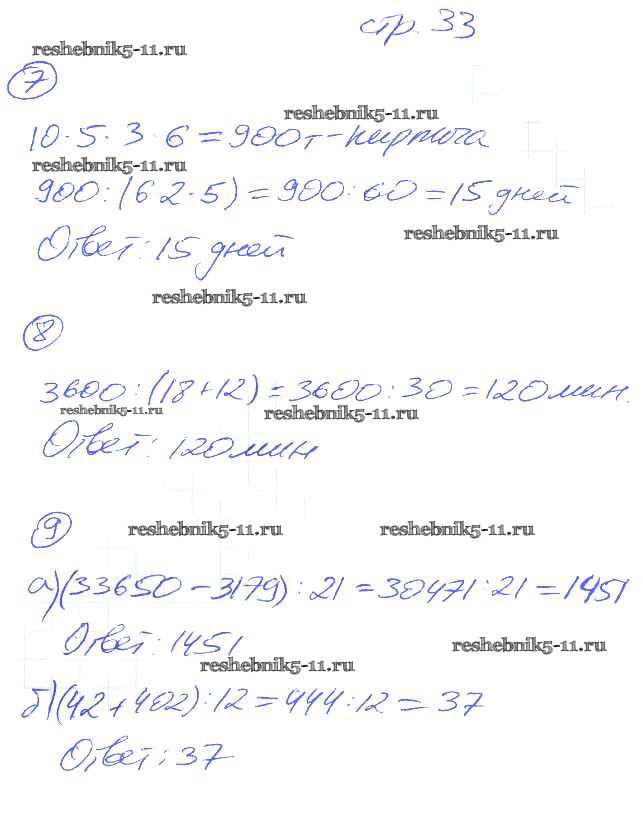 стр. 33
reshebnik5-11.ru
7
reshebnik5-11.ru
10·5·3·6=900т-кирпича
reshebnik5-11.ru
900:(62·5)=900:60=15 дней
reshebnik5-11.ru
Ответ: 15 дней
reshebnik5-11.ru
8
3600:(18+12)=3600:30=120мин.
reshebnik5-11.ru reshebnik5-11.ru
Ответ: 120мин
9 reshebnik5-11.ru reshebnik5-11.ru
а)(33650-3179):21=30471:21=1451
Ответ: 1451
reshebnik5-11.ru
reshebnik5-11.ru
б)(42+402):12=444:12=37
Ответ: 37